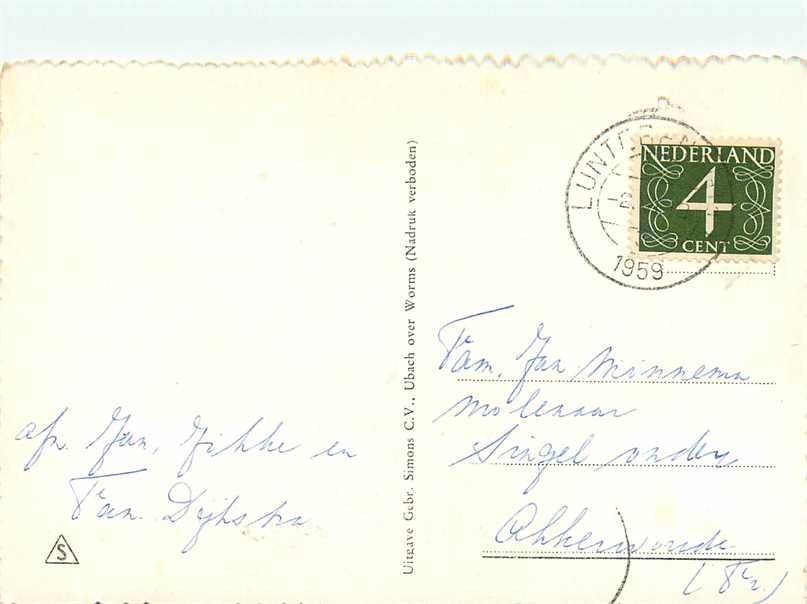 LUNTEREN
1959
NEDERLAND
4
CENT
Fam. Jan Minnema
molenaar
Singel onder
Akkerwoude
(Fr.)
Uitgave Gebr. Simons C.V., Ubach over Worms (Nadruk verboden)
afz. Jan, Fikke en
Fam. Dijkstra
S